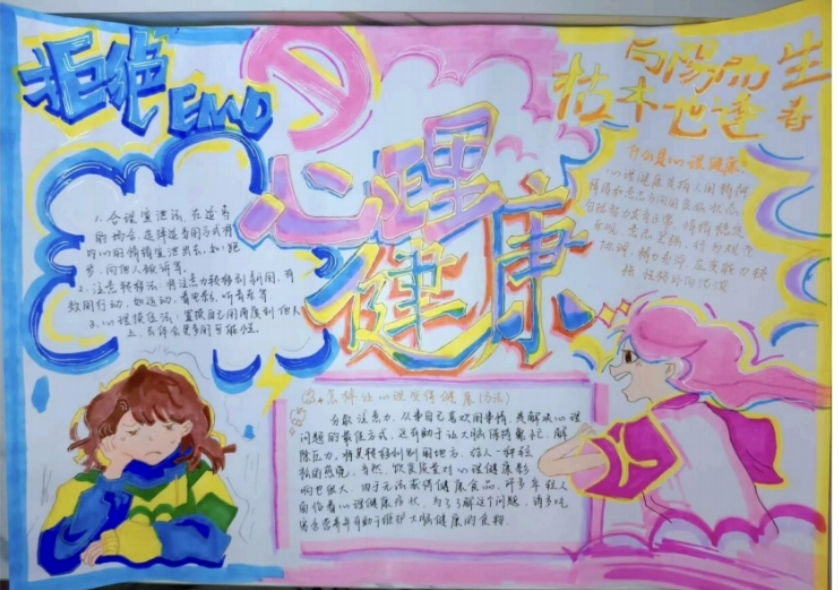 拒绝
EMO
向阳而生
枯木也逢春
心理
健康
1、合理宣泄法,在适当
的场合,选择适当的方式将
内心的情绪宣泄出去,如:跑
步、向他人倾诉等。
2、注意转移法:将注意力转移到别的,有
效的行动,如运动、看电影、听音乐等
3、心理换位法:置换自己的角度到他人
去体会更多的可能性。
什么是心理健康:
心理健康是指人的精神
情绪和意志方面的良好状态,
包括智力发育正常、情绪稳定
乐观、意志坚强、行为规范
协调、精力充沛、应变能力较
怎样让心理变得健康(方法)
分散注意力,从事自己喜欢的事情,是解决心理
问题的最佳方式,还有助于让大脑保持繁忙,解
除压力,将其转移到别的地方,给人一种轻
松的感觉,当然,饮食质量对心理健康影
响也很大,由于无法获得健康食品,许多年轻人
面临着心理健康症状,为了了解这个问题,请多吃
富含营养并有助于维护大脑健康的食物.